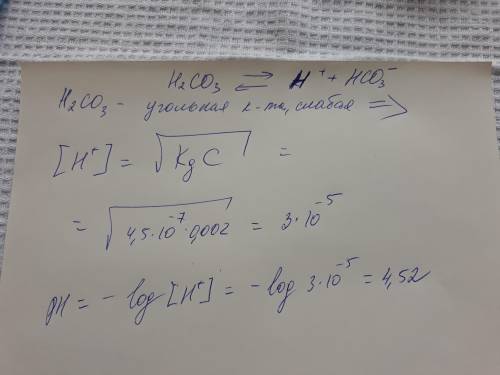 H₂CO₃ ⇄ H⁺ + HCO₃⁻
H₂CO₃ - угольная к-та, слабая =>
[H⁺] = √KgC =
= √4,5·10⁻⁷·0,002 = 3·10⁻⁵
pH = - log [H⁺] = - log 3·10⁻⁵ = 4,52